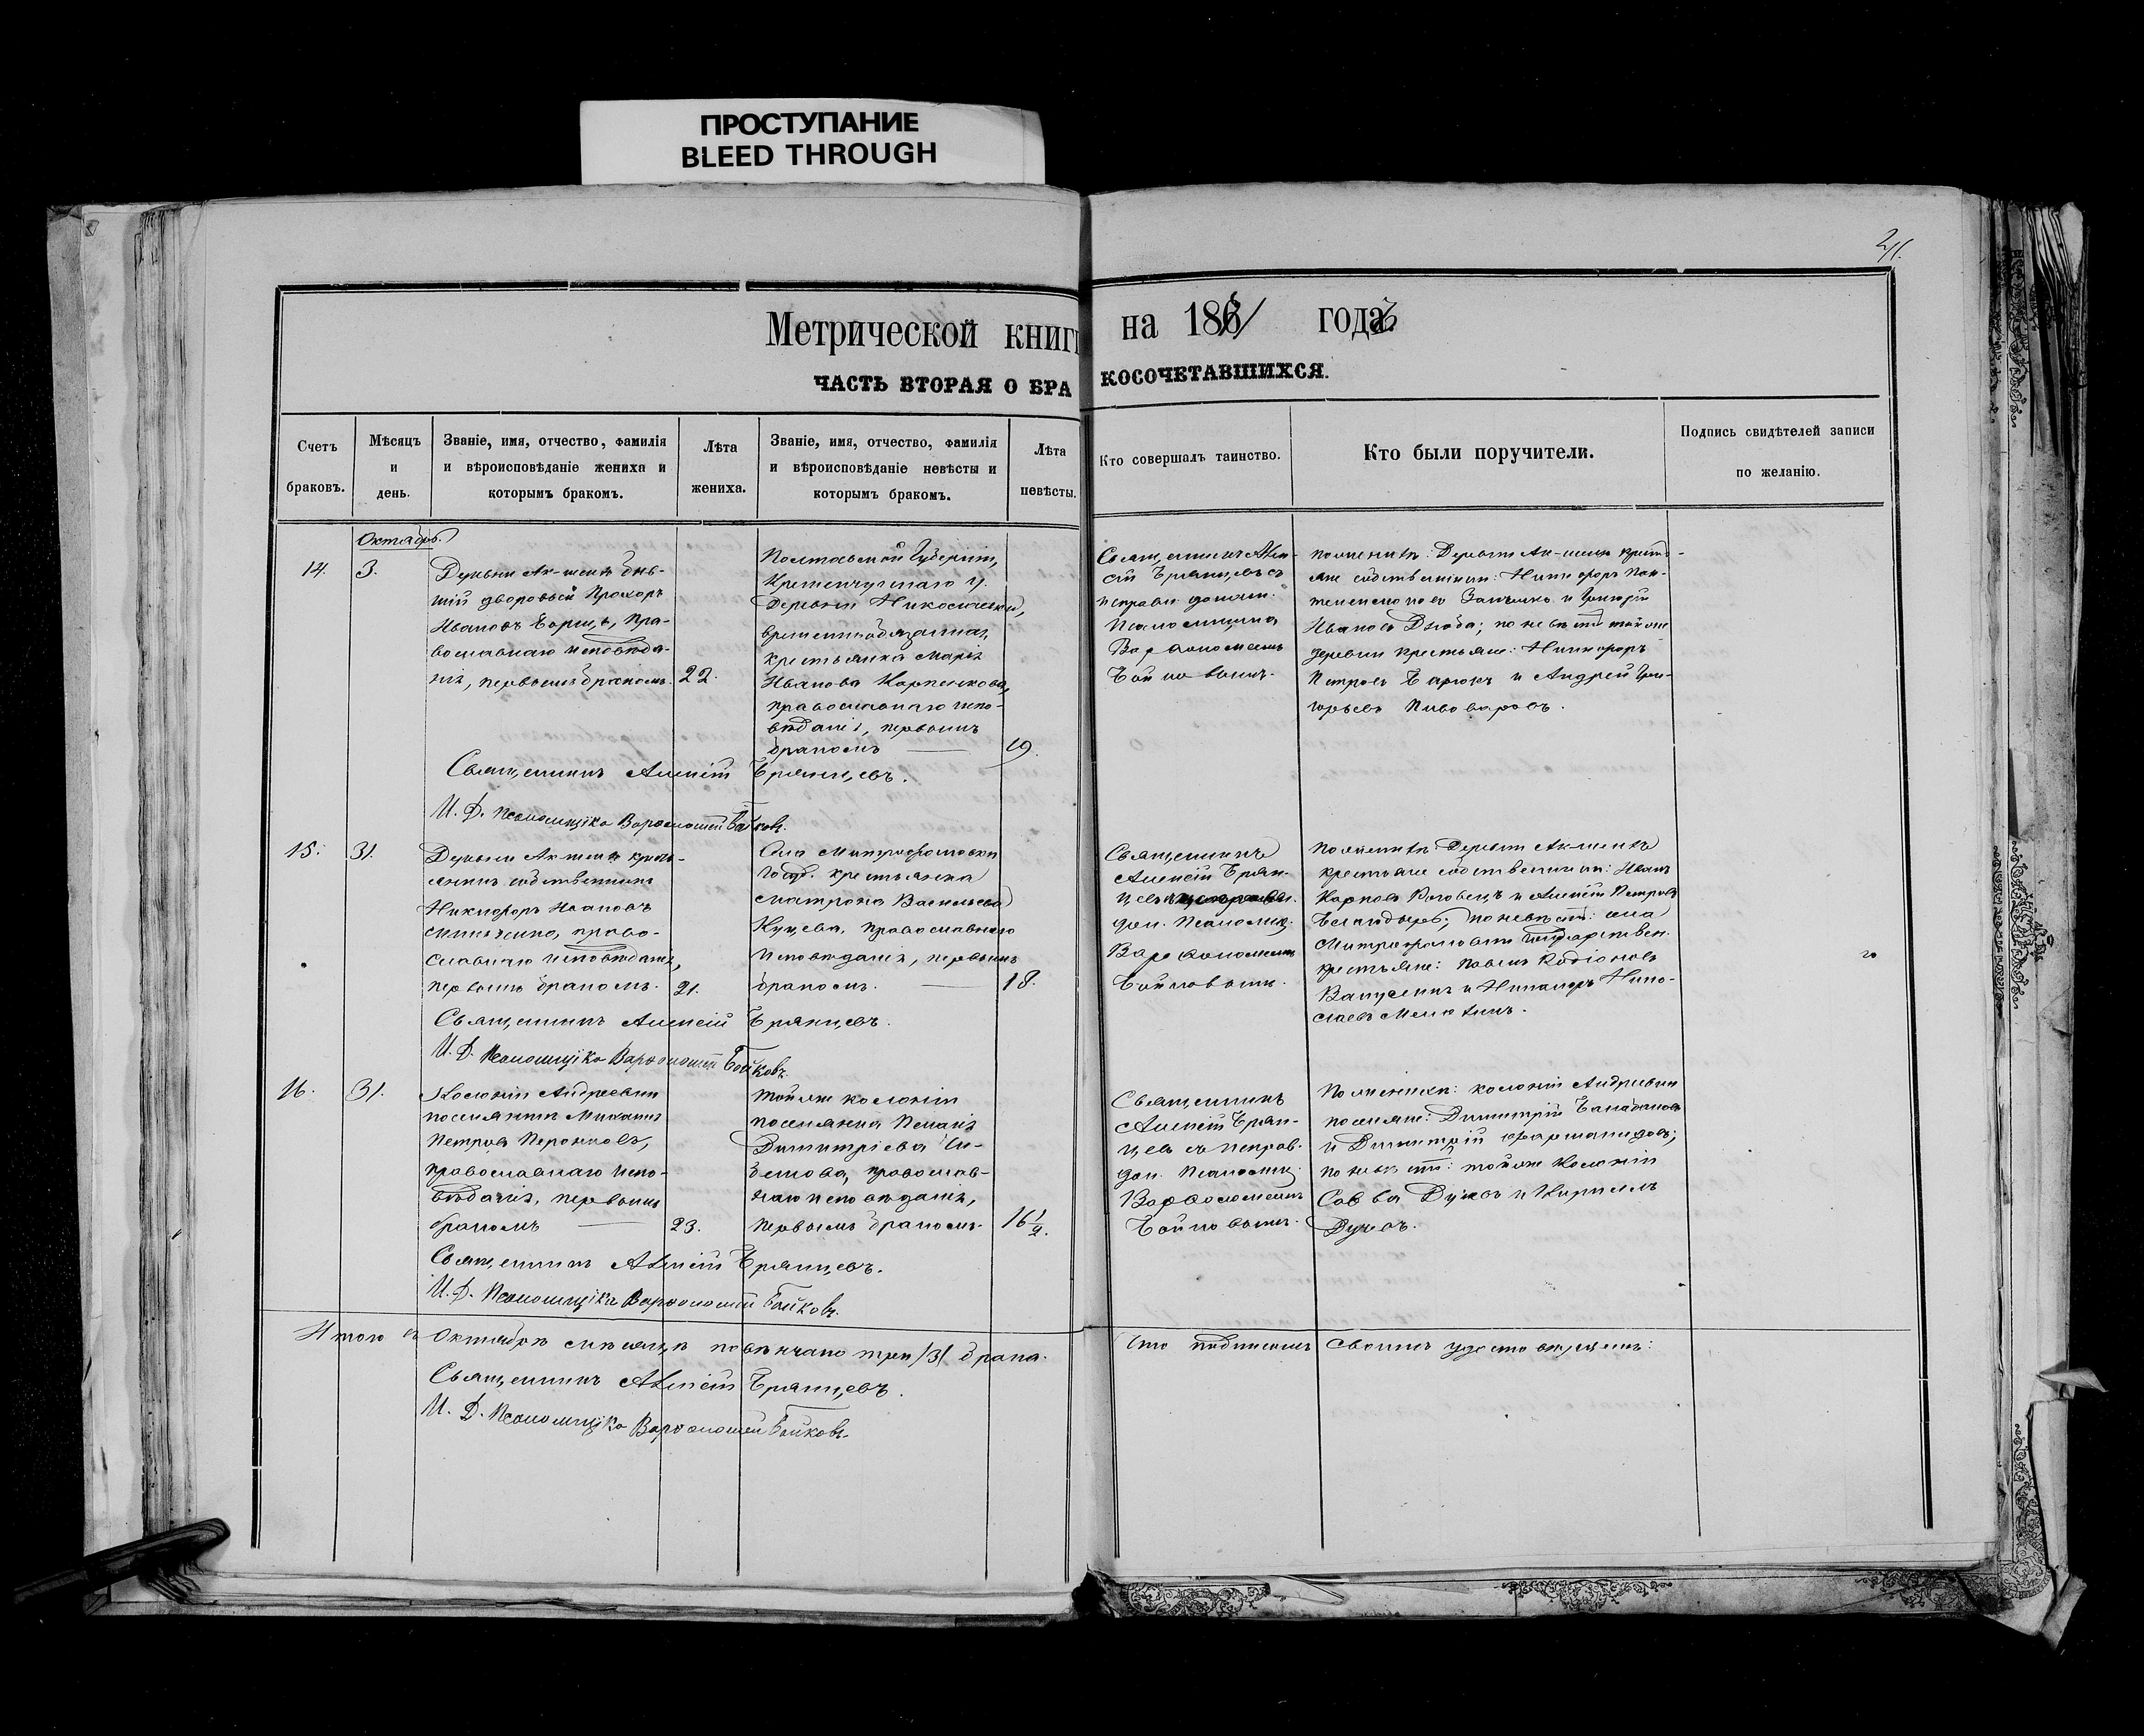 ПРОСТУПАНИЕ
BLEED THROUGH
Метрической книги на 186 года.
ЧАСТЬ ВТОРАЯ О БРАКОСОЧЕТАВШИХСЯ.
Счетъ
браковъ.
Мѣсяцъ
и
день.
Званіе, имя, отчество, фамилія
и вѣроисповѣданіе жениха и
которымъ бракомъ.
Лѣта
жениха.
Званіе, имя, отчество, фамилія
и вѣроисповѣданіе невѣсты и
которымъ бракомъ.
Лѣта
невѣсты.
Кто совершалъ таинство.
Кто были поручители.
Подпись свидѣтелей записи
по желанію.
Октябрь
14.
3.
Деревни быв-
шій дворовый Прохоръ
Ивановъ Борицъ, пра-
вославнаго исповѣда-
нія, первымъ бракомъ.
22.
Полтавской Губерніи,
Кременчугскаго у.
деревни
временнообязанная
крестьянка Марія
Иванова Карпенкова,
православнаго испо-
вѣданія, первымъ
бракомъ
19.
Священникъ Алек-
сій Брянцевъ съ
исправ. должн.
Псаломщика
Варфоломеемъ
Бойковымъ.
по женихѣ: Деревни кресть-
яне собственники: Никифоръ Пан-
и Григорій
Ивановъ Дзюба; по невѣстѣ: той же
деревни крестьяне: Никифоръ
Петровъ и Андрей Гри-
горьевъ Пивоваровъ.
Священникъ Алексій Брянцевъ.
И. Д. Псаломщика Варфоломей Бойковъ.
15.
31.
Деревни кресть-
янинъ собственникъ
Никифоръ Ивановъ
право-
славнаго исповѣданія,
первымъ бракомъ.
21.
Села Митрофановки
Госуд. крестьянка
Матрона Васильева
Куцева, православнаго
исповѣданія, первымъ
бракомъ.
18.
Священникъ
Алексій Брян-
цевъ
дол. Псаломщ.
Варфоломеемъ
Бойковымъ.
по женихѣ: Деревни
крестьяне собственники: Иванъ
Карповъ и Алексій Петровъ
по невѣстѣ: села
Митрофановки государствен.
крестьяне: Павелъ Родіоновъ
и Никаноръ Нико-
лаевъ
Священникъ Алексій Брянцевъ.
И. Д. Псаломщика Варфоломей Бойковъ.
16.
31.
Колоніи Андреевки
поселянинъ Михаилъ
Петровъ
православнаго испо-
вѣданія, первымъ
бракомъ
23.
той же колоніи
поселянка Пелагія
Димитріева
православ-
наго исповѣданія,
первымъ бракомъ.
16 1/2.
Священникъ
Алексій Брян-
цевъ съ исправ.
дол. Псаломщ.
Варфоломеемъ
Бойковымъ.
По женихѣ: колоніи Андреевки
поселяне: Димитрій
и Димитрій
по невѣстѣ: той же колоніи
Савва и Кириллъ
Священникъ Алексій Брянцевъ.
И. Д. Псаломщика Варфоломей Бойковъ.
Итого въ Октябрѣ мѣсяцѣ повѣнчано три /3/ брака. Что подписомъ своимъ удостовѣряемъ:
Священникъ Алексій Брянцевъ.
И. Д. Псаломщика Варфоломей Бойковъ.